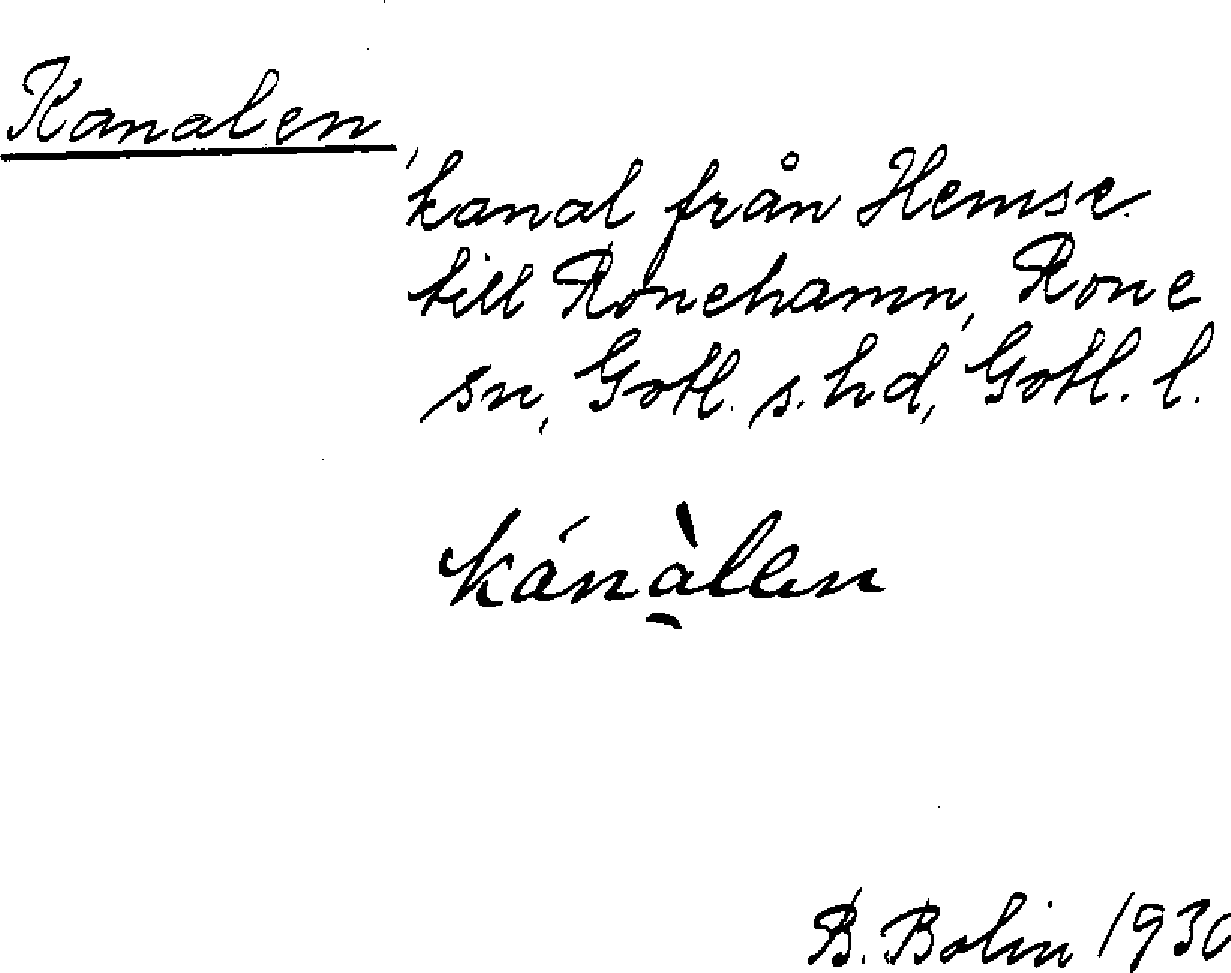 Kanalen,
kanal från Hemse
till Ronehamn, Rone
sn, Gotl. s. hd, Gotl. l.
kánàlen
B. Bolin 1930